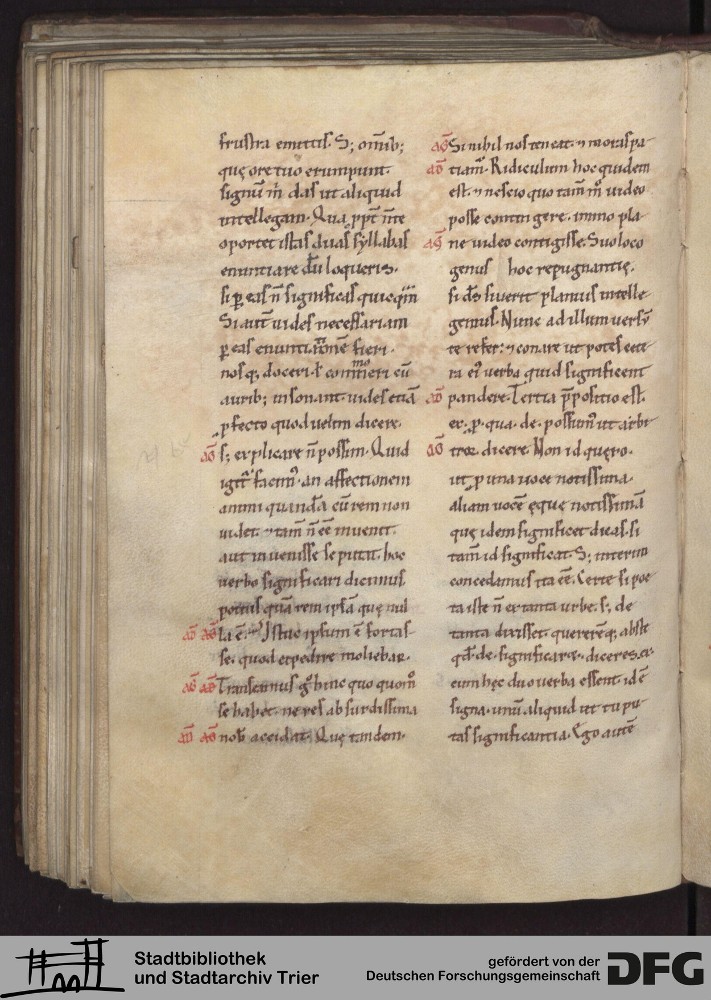 frustra emittis. S; om̄ib;
quę ore tuo erumpunt.
signū m̄ das ut aliquid
intellegam. Qua ꝓpt̄ n̄ te
oportet istas duas syllabas
enuntiare dū loqueris.
si ꝑ eas n̄ significas quicq̄m
Si aut̄ uides necessariam
ꝑ eas enuntiationē fieri.
nosq; doceri. ł com̄moneri cū
aurib; insonant. uides etiā
ꝓfecto quod uelim dicere.
AD s; explicare n̄ possim. Quid
igit̄ facim⁹. an affectionem
animi quandā cū rem non
uidet. ⁊ tam̄ n̄ eē inuenit.
aut inuenisse se putat. hoc
uerbo significari dicimus
potius quā rem ipsā quę nul
AD AG la ē. Istuc ipsum ē fortas
se. quod expedire moliebar.
AG AD Transeamus g̊ hinc quo quom̊
se habet. ne res absurdissima
AD AG nob̄ accidat. Quę tandem.
AG Si nihil nos teneat. ⁊ moras pa
AD tiam̄. Ridiculum hoc quidem
est. ⁊ nescio quo tam̄ m̊ uideo
posse contingere. immo pla
AG ne uideo contigisse. Suo loco
genus hoc repugnantię.
si ds̄ siuerit planius intelle
gemus. Nunc ad illum uersū
te refer. ⁊ conare ut potes cete
ra ei⁹ uerba quid significent
AD pandere. Tertia p̄positio est.
ex. ꝓ qua. de. possum⁹ ut arbi
AG tror dicere. Non id quęro.
ut ꝓ una uoce notissima.
aliam uocē ęque notissimā
quę idem significet dicas. si
tam̄ id significat. S; interim
concedamus ita eē. Certe si poe
ta iste n̄ ex tanta urbe. s; de
tanta dixisset. quereremq; abs te
qd̄ de. significaret. diceres. ex.
cum hęc duo uerba essent. id ē
signa. unū aliquid ut tu pu
tas significantia. Ego autē
Stadtbibliothek
und Stadtarchiv Trier
gefördert von der
Deutschen Forschungsgemeinschaft
DFG